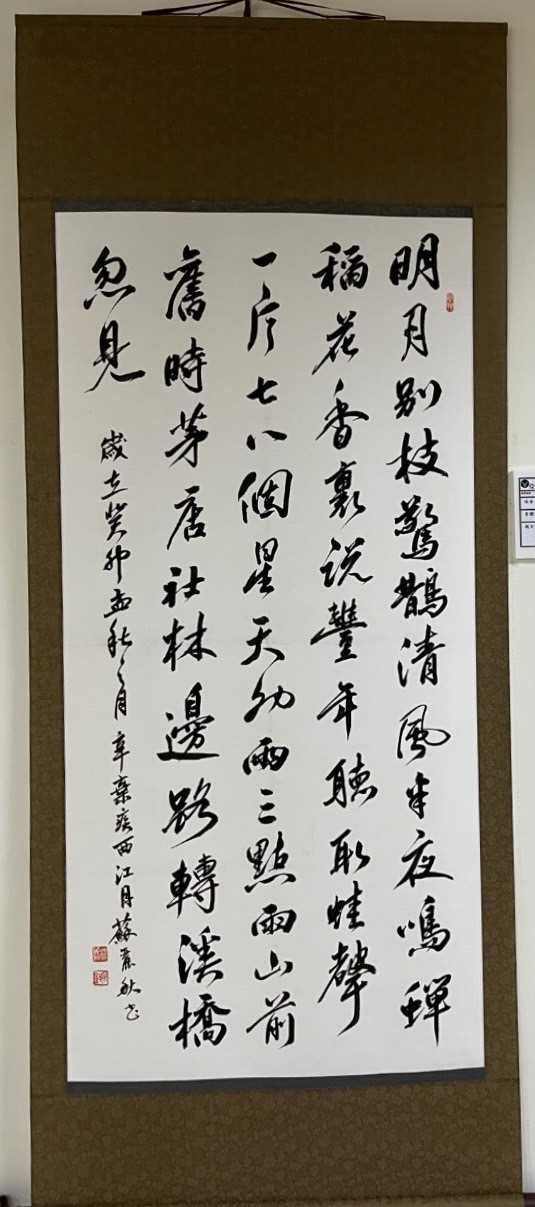 明月別枝驚鵲清風半夜鳴蟬
稻花香裏説豐年聽取蛙聲
一片七八個星天外兩三點雨山前
舊時茅店社林邊路轉溪橋
忽見
歲在癸卯孟秋之月辛棄疾西江月